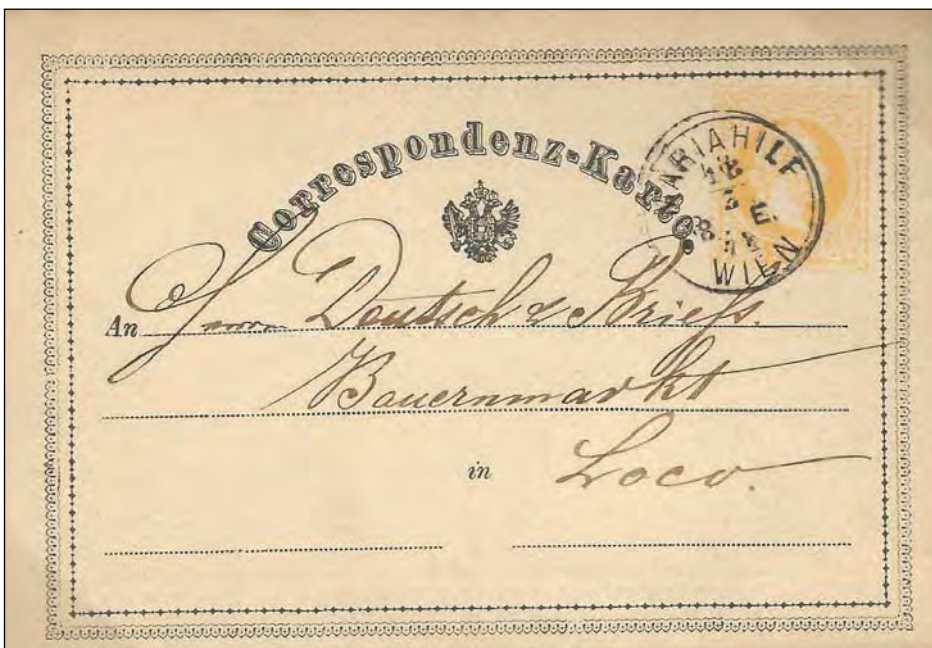 Correspondenz-Karte.
MARIAHILF
WIEN
An Herrn Deutsch & Briefs.
Bauernmarkt
in Loco.